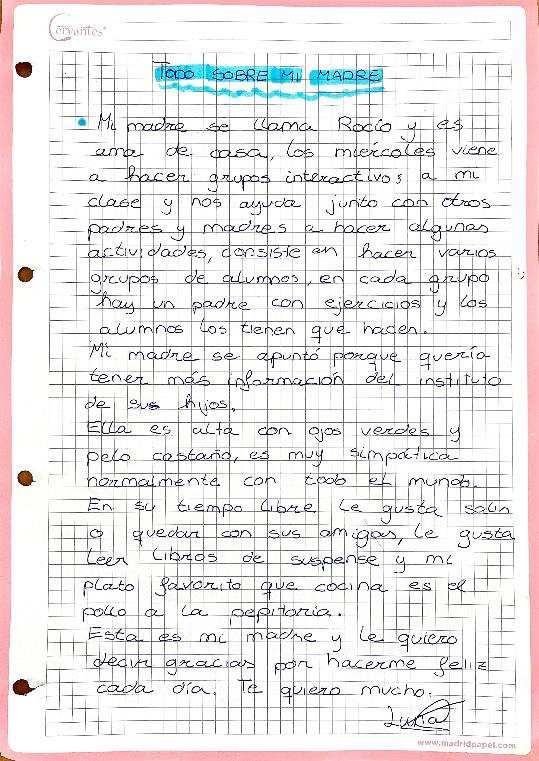 Cervantes
TODO SOBRE MI MADRE
• Mi madre se llama Rocío y es
ama de casa, los miércoles viene
a hacer grupos interactivos a mi
clase y nos ayuda junto con otros
padres y madres a hacer algunas
actividades, consiste en hacer varios
grupos de alumnos, en cada grupo
hay un padre con ejercicios y los
alumnos los tienen que hacer.
Mi madre se apuntó porque quería
tener más información del instituto
de sus hijos.
Ella es alta con ojos verdes y
pelo castaño, es muy simpática
normalmente con todo el mundo.
En su tiempo libre le gusta salir
o quedar con sus amigas, le gusta
leer libros de suspense y mi
plato favorito que cocina es el
pollo a la pepitoria.
Esta es mi madre y le quiero
decir gracias por hacerme feliz
cada día. Te quiero mucho.
www.madridpapel.com